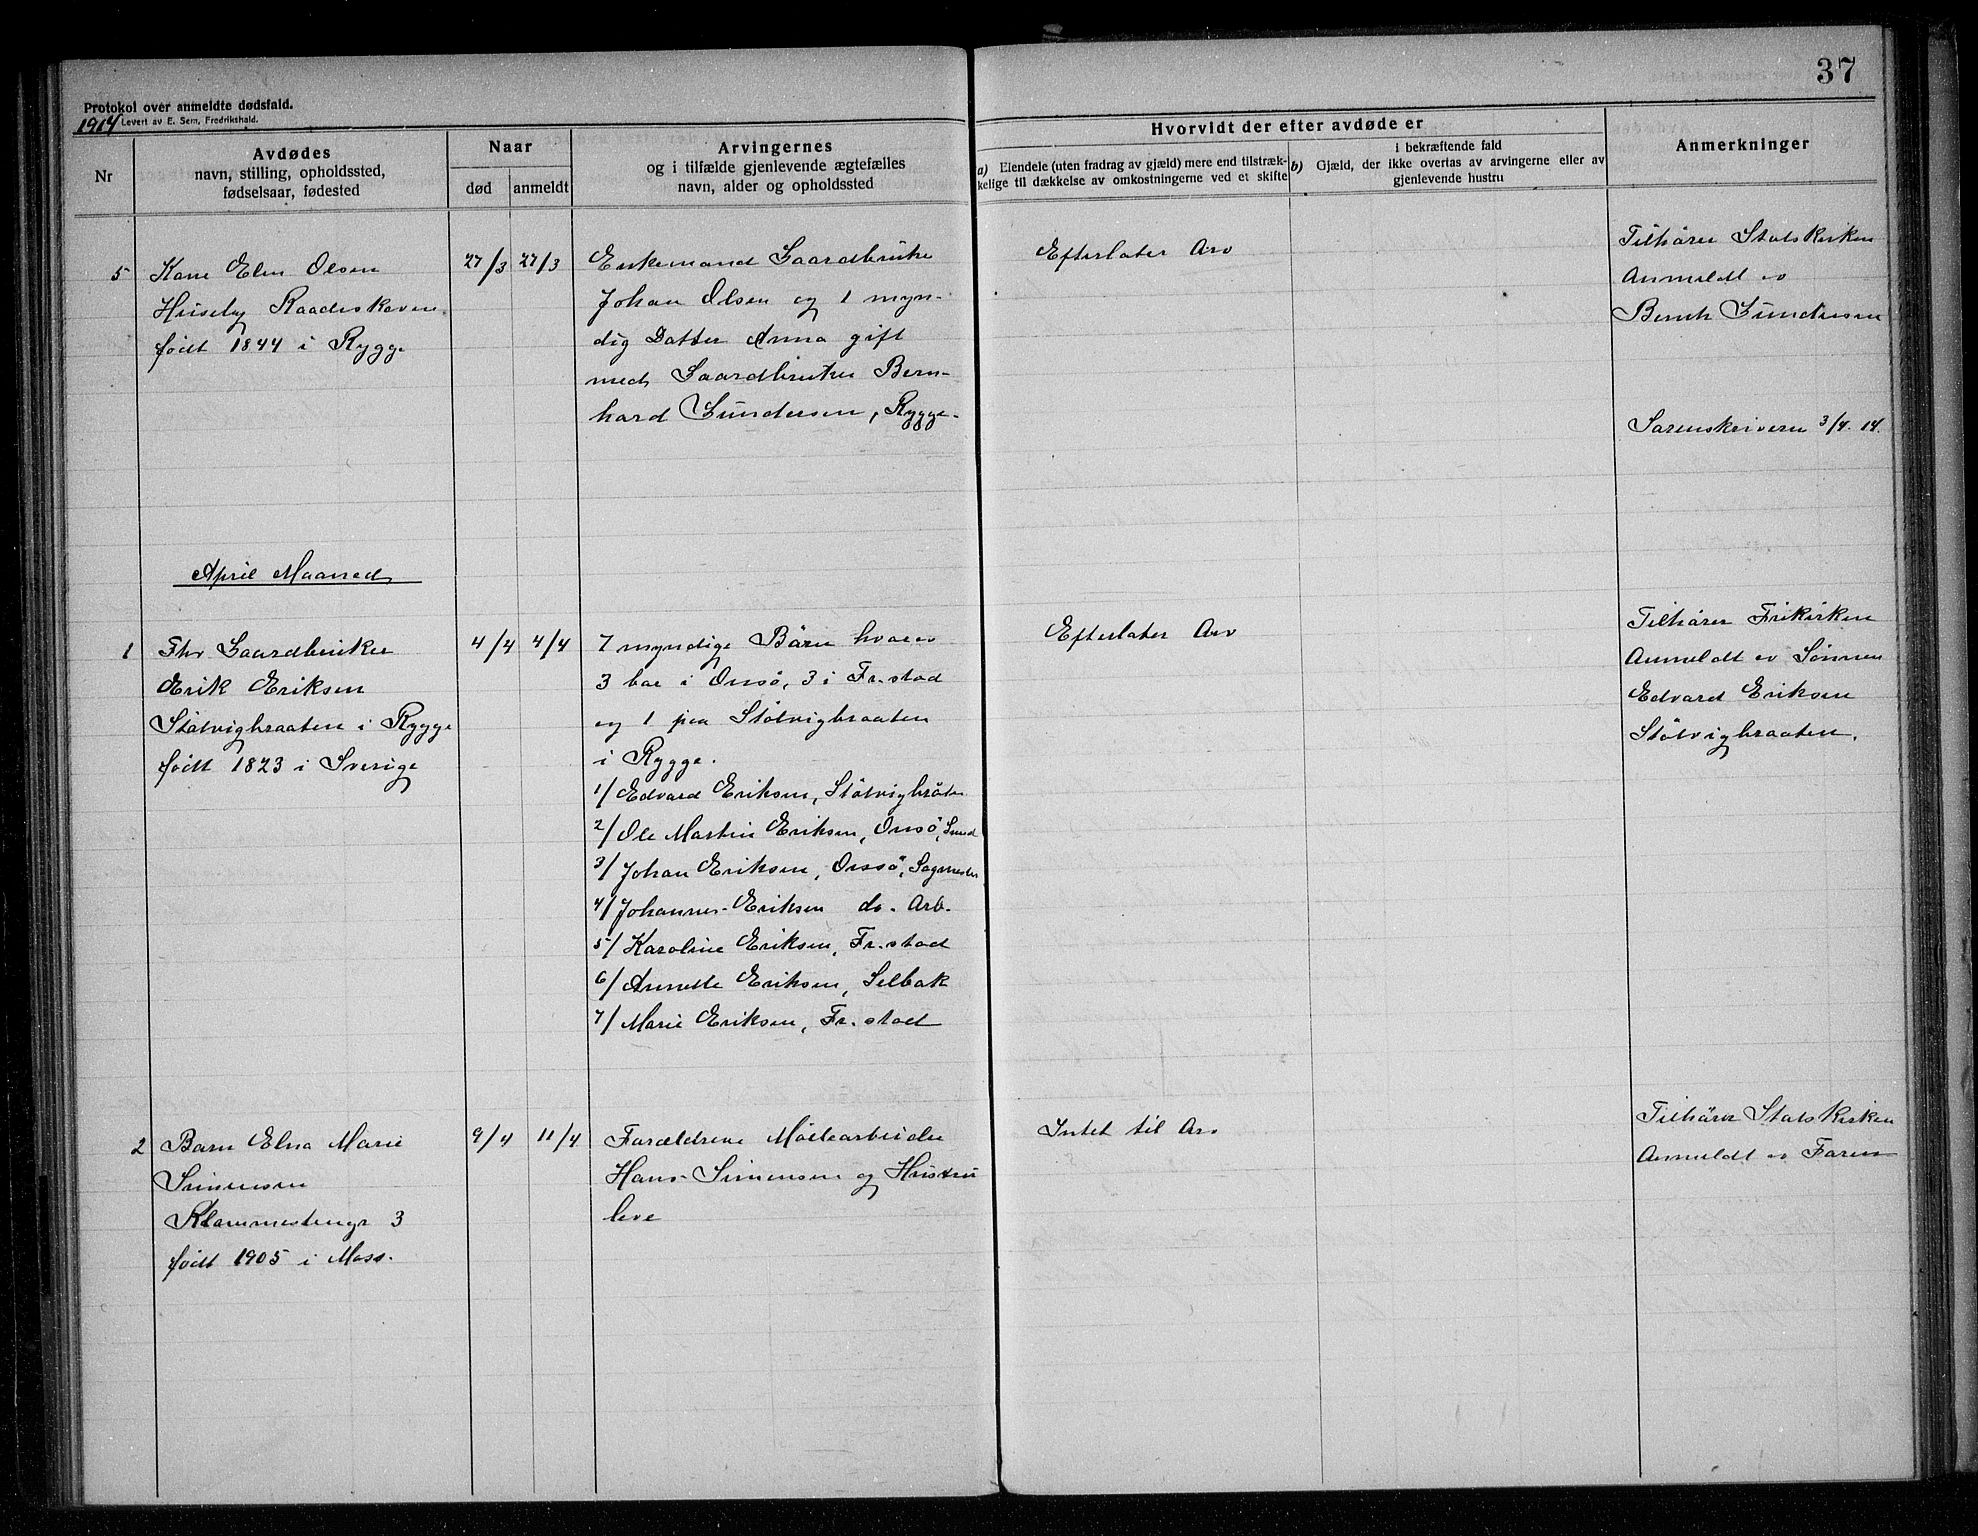 37
Protokol over anmeldte dødsfald.
1914 Levert av E. Sem, Fredrikshald.
Nr
Avdødes
navn, stilling, opholdssted,
fødselsaar, fødested
Naar
død
anmeldt
Arvingernes
og i tilfælde gjenlevende ægtefælles
navn, alder og opholdssted
Hvorvidt der efter avdøde er
a) Eiendele (uten fradrag av gjæld) mere end tilstræk-
kelige til dækkelse av omkostningerne ved et skifte
i bekræftende fald
b) Gjæld, der ikke overtas av arvingerne eller av
gjenlevende hustru
Anmerkninger
5
Kone Elen Olsen
Huseby Raadeskoven
født 1844 i Rygge
27/3
27/3
Enkemand Gaardbruke
Johan Olsen og 1 myn-
dig Datter Anna gift
med Gaardbruker Bern-
hard Gundersen, Rygge.
Efterlater Arv
Tilhører Statskirken
Anmeldt av
Bernh Gundersen
Sorenskriveren 3/4. 14.
April Maaned
1
Fhv Gaardbruker
Erik Eriksen
Støtvigbraaten i Rygge
født 1823 i Sverige
4/4
4/4
7 myndige Børn hvorav
3 bor i Onsø, 3 i Fr.stad
og 1 paa Støtvigbraaten
i Rygge.
1/ Edvard Eriksen, Støtvigbråten
2/ Ole Martin Eriksen, Onsø, Smed
3/ Johan Eriksen, Onsø, Sagmester
4/ Johannes Eriksen do. Arb.
5/ Karoline Eriksen, Fr.stad
6/ Annette Eriksen, Selbak
7/ Marie Eriksen, Fr.stad
Efterlater Arv
Tilhører Frikirken
Anmeldt av Sønnen
Edvard Eriksen
Støtvigbraaten.
2
Barn Elna Marie
Simensen
Klommestengr 3
født 1905 i Moss.
9/4
11/4
Forældrene Møllearbeider
Hans Simensen og Hustru
leve
Intet til Arv
Tilhører Statskirken
Anmeldt av Faren